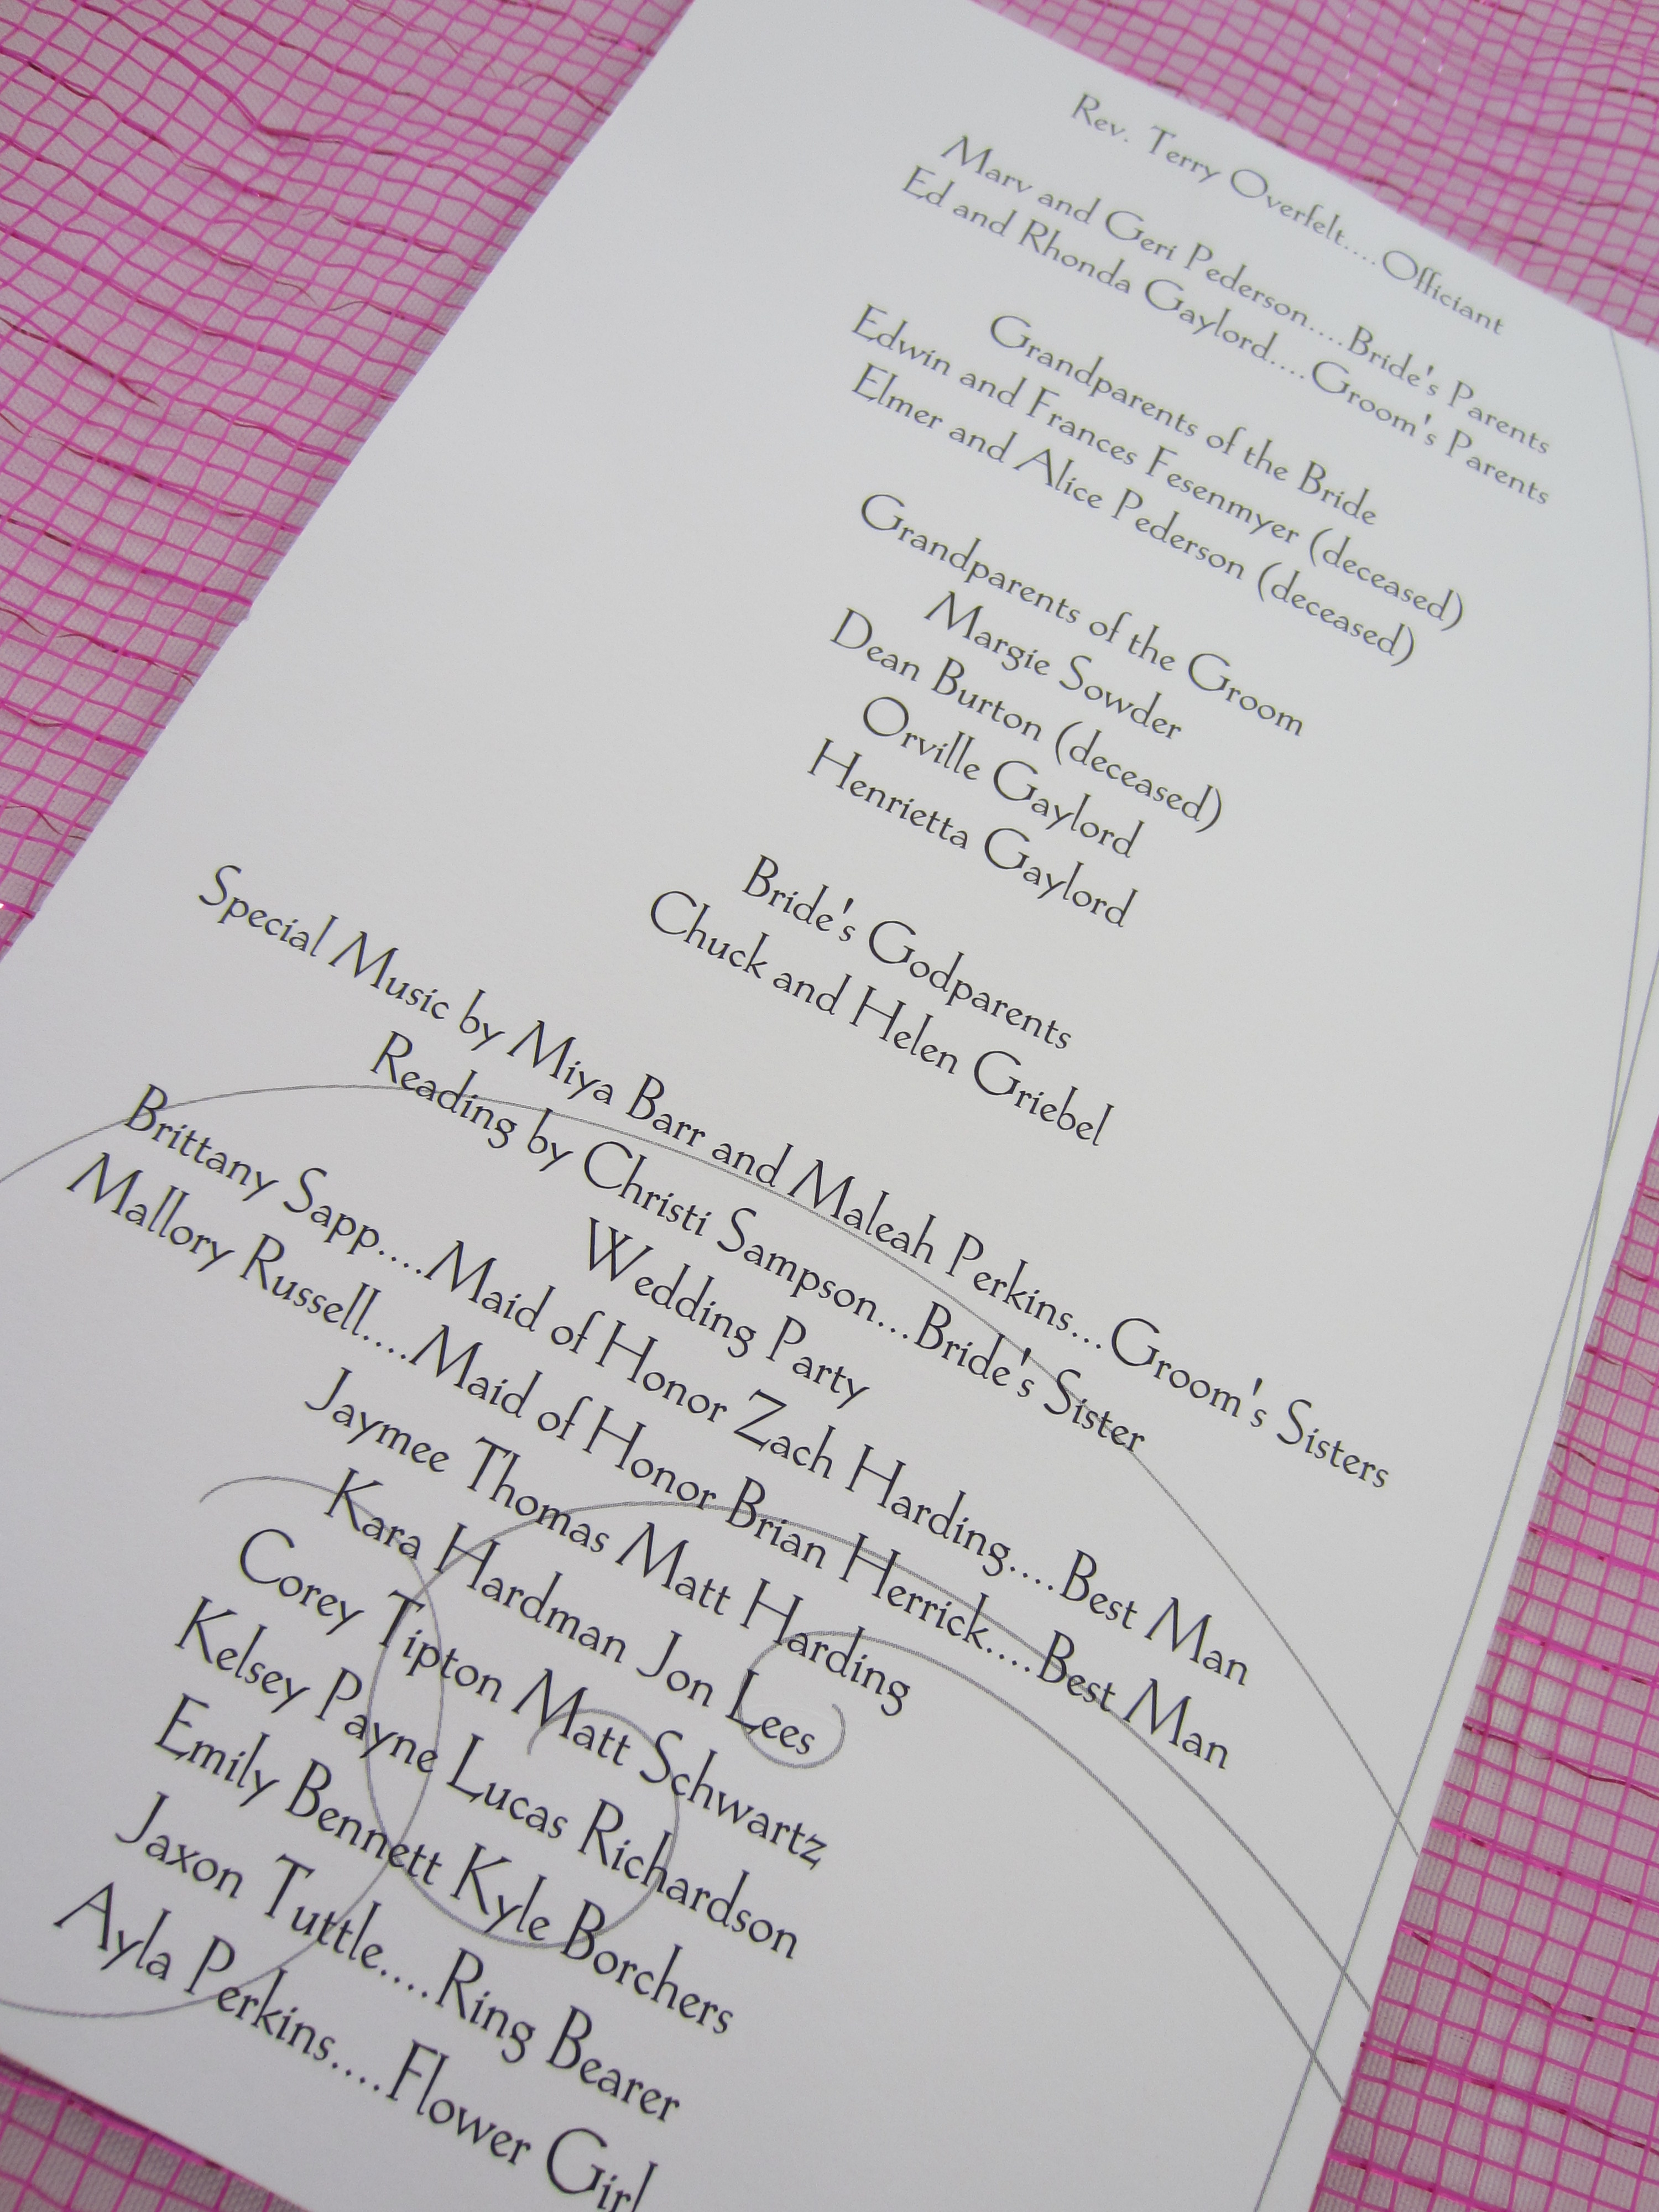 Rev. Terry Overfelt....Officiant
Marv and Geri Pederson....Bride's Parents
Ed and Rhonda Gaylord....Groom's Parents
Grandparents of the Bride
Edwin and Frances Fesenmyer (deceased)
Elmer and Alice Pederson (deceased)
Grandparents of the Groom
Margie Sowder
Dean Burton (deceased)
Orville Gaylord
Henrietta Gaylord
Bride's Godparents
Chuck and Helen Griebel
Special Music by Miya Barr and Maleah Perkins...Groom's Sisters
Reading by Christi Sampson...Bride's Sister
Wedding Party
Brittany Sapp....Maid of Honor Zach Harding....Best Man
Mallory Russell....Maid of Honor Brian Herrick....Best Man
Jaymee Thomas Matt Harding
Kara Hardman Jon Lees
Corey Tipton Matt Schwartz
Kelsey Payne Lucas Richardson
Emily Bennett Kyle Borchers
Jaxon Tuttle....Ring Bearer
Ayla Perkins....Flower Girl